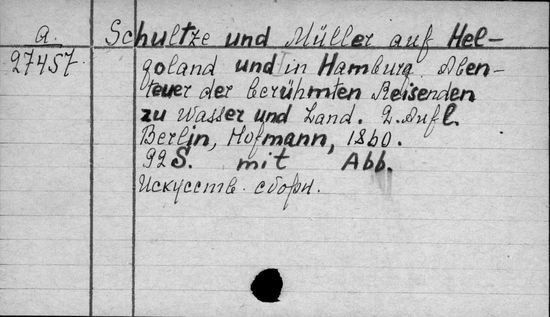 a.
27457.
Schultze und Müller auf Hel-
goland und in Hamburg. Aben-
teuer der berühmten Reisenden
zu Wasser und Land. 2. Aufl.
Berlin, Hofmann, 1860.
92 S. mit Abb.
Искусств. сборн.